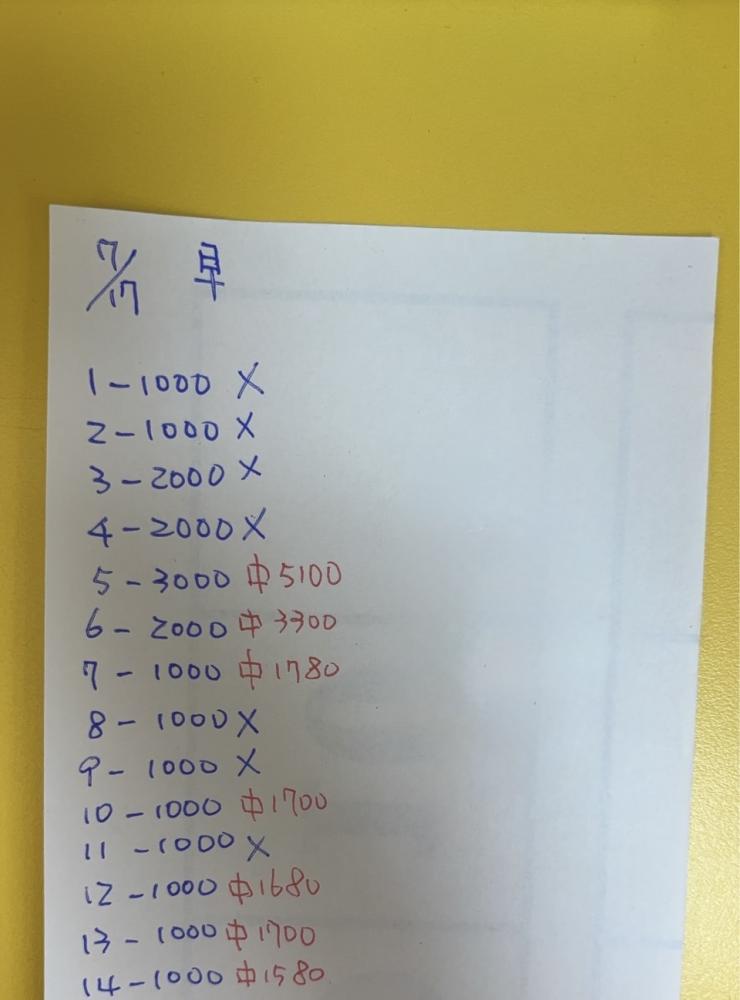 7/17 早
1-1000 X
2-1000 X
3-2000 X
4-2000 X
5-3000 中5100
6-2000 中3300
7-1000 中1780
8-1000 X
9-1000 X
10-1000 中1700
11-1000 X
12-1000 中1680
13-1000 中1700
14-1000 中1580